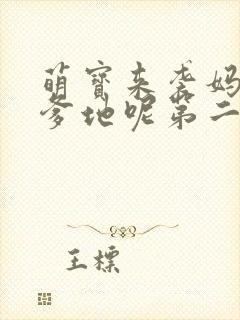 萌宝来袭妈
爹地呢第二
王标